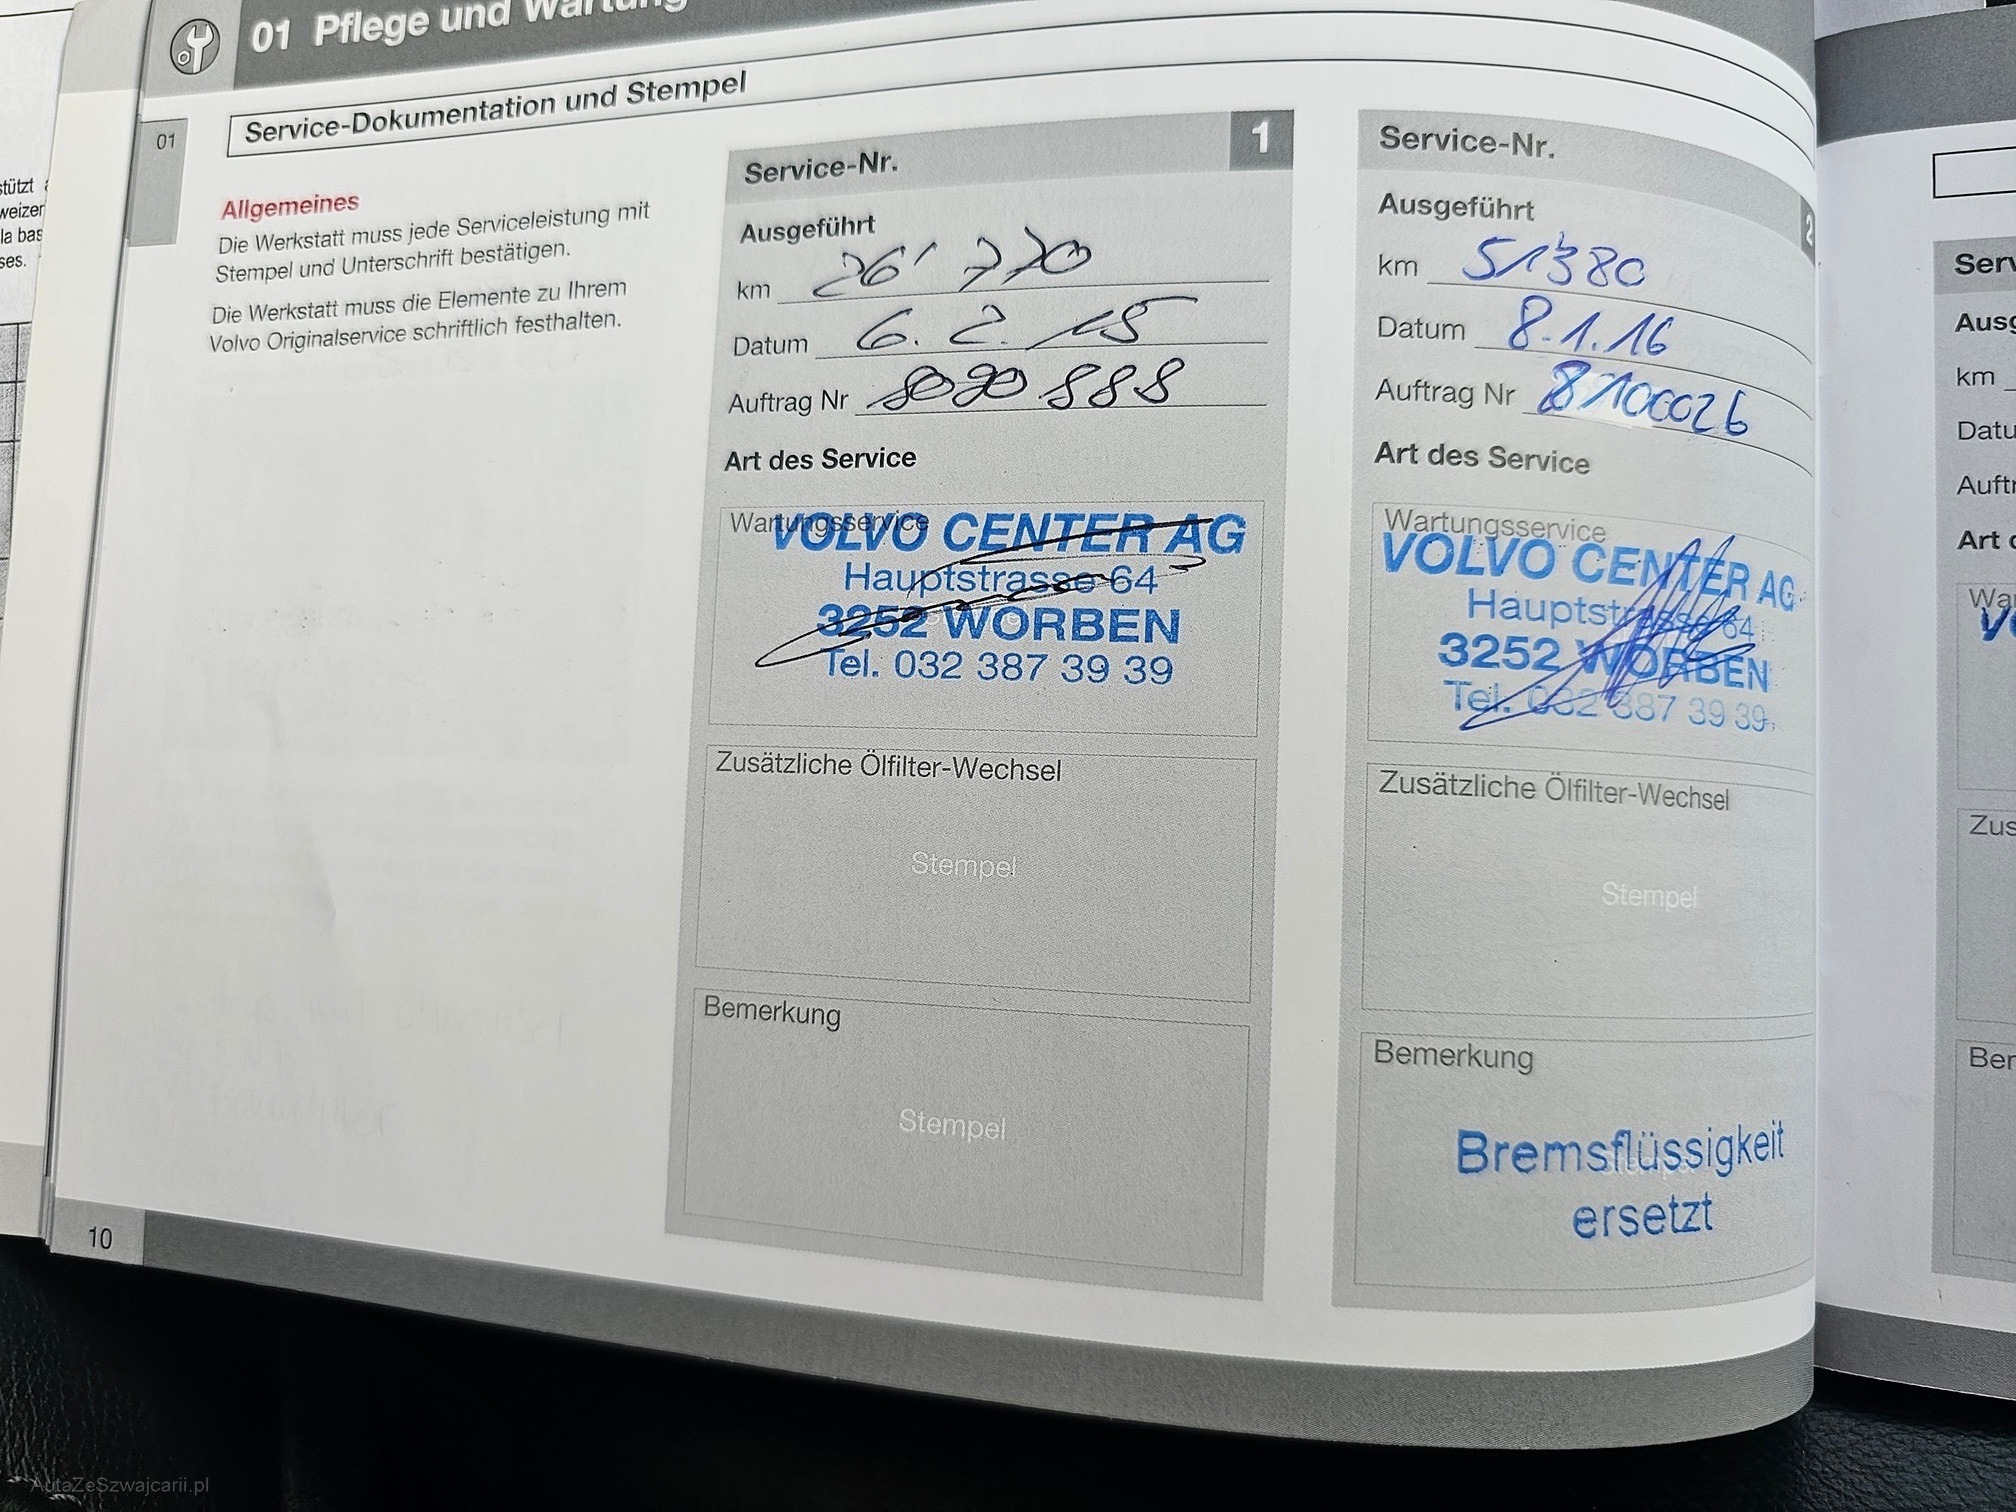 01 Pflege und Wartung
Service-Dokumentation und Stempel
01
Allgemeines
Die Werkstatt muss jede Serviceleistung mit
Stempel und Unterschrift bestätigen.
Die Werkstatt muss die Elemente zu Ihrem
Volvo Originalservice schriftlich festhalten.
Service-Nr. 1
Ausgeführt
km 26'770
Datum 6. 2. 15
Auftrag Nr 8090888
Art des Service
Wartungsservice
VOLVO CENTER AG
Hauptstrasse 64
3252 WORBEN
Tel. 032 387 39 39
Zusätzliche Ölfilter-Wechsel
Stempel
Bemerkung
Stempel
Service-Nr. 2
Ausgeführt
km 51'380
Datum 8.1.16
Auftrag Nr 8100026
Art des Service
Wartungsservice
VOLVO CENTER AG
Hauptstrasse 64
3252 WORBEN
Tel. 032 387 39 39
Zusätzliche Ölfilter-Wechsel
Stempel
Bemerkung
Bremsflüssigkeit
ersetzt
km
10
AutaZeSzwajcarii.pl